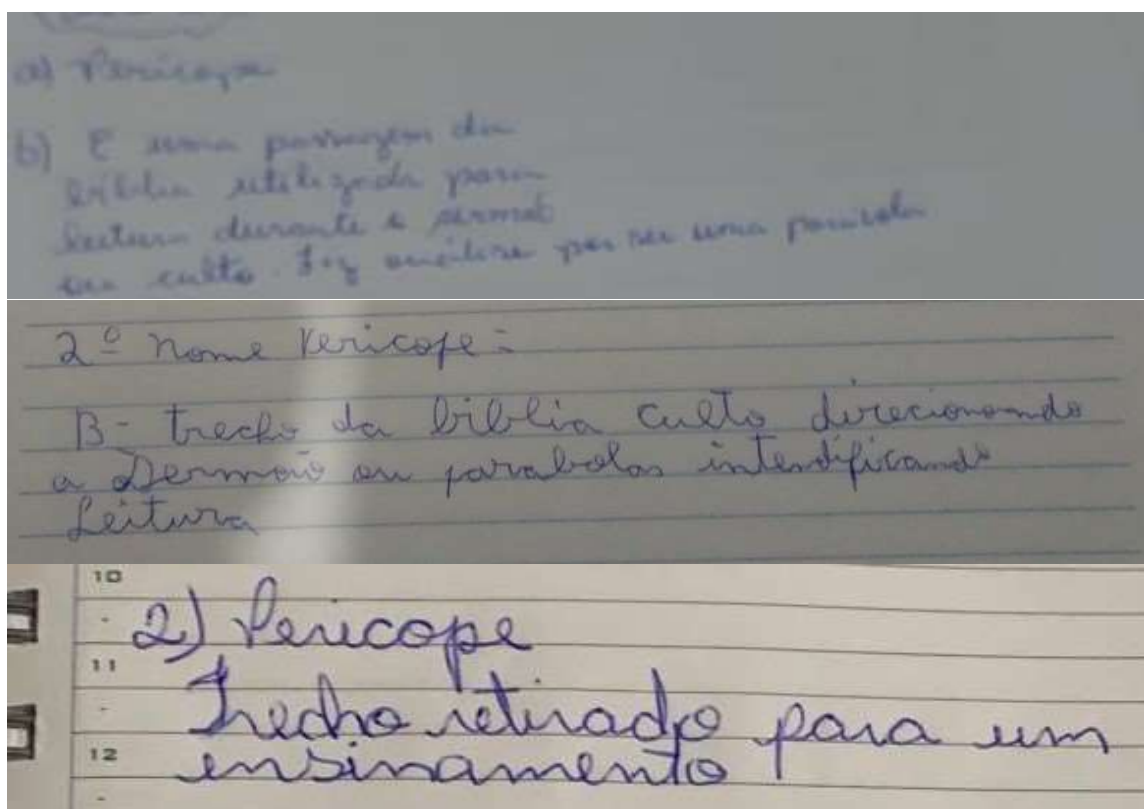 a) Pericope
b) E uma passagem da
biblia utilizada para
leitura durante o sermão
ou culto. por ser uma parabola
2º nome Pericope:
B- trecho da biblia culto direcionando
a Sermão ou parabolas intendificando
Leitura
10
2) Pericope
11
Trecho retirado para um
12
ensinamento